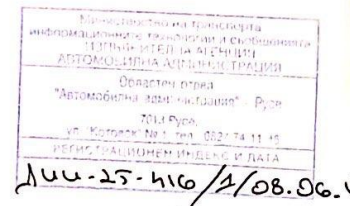 Министерство на транспорта
информационните технологии и съобщенията
ИЗПЪЛНИТЕЛНА АГЕНЦИЯ
АВТОМОБИЛНА АДМИНИСТРАЦИЯ
Областен отдел
"Автомобилна администрация" - Русе
7013 Русе,
ул. "Котовск" № 1, тел.
РЕГИСТРАЦИОНЕН ИНДЕКС И ДАТА
/1/08.06.